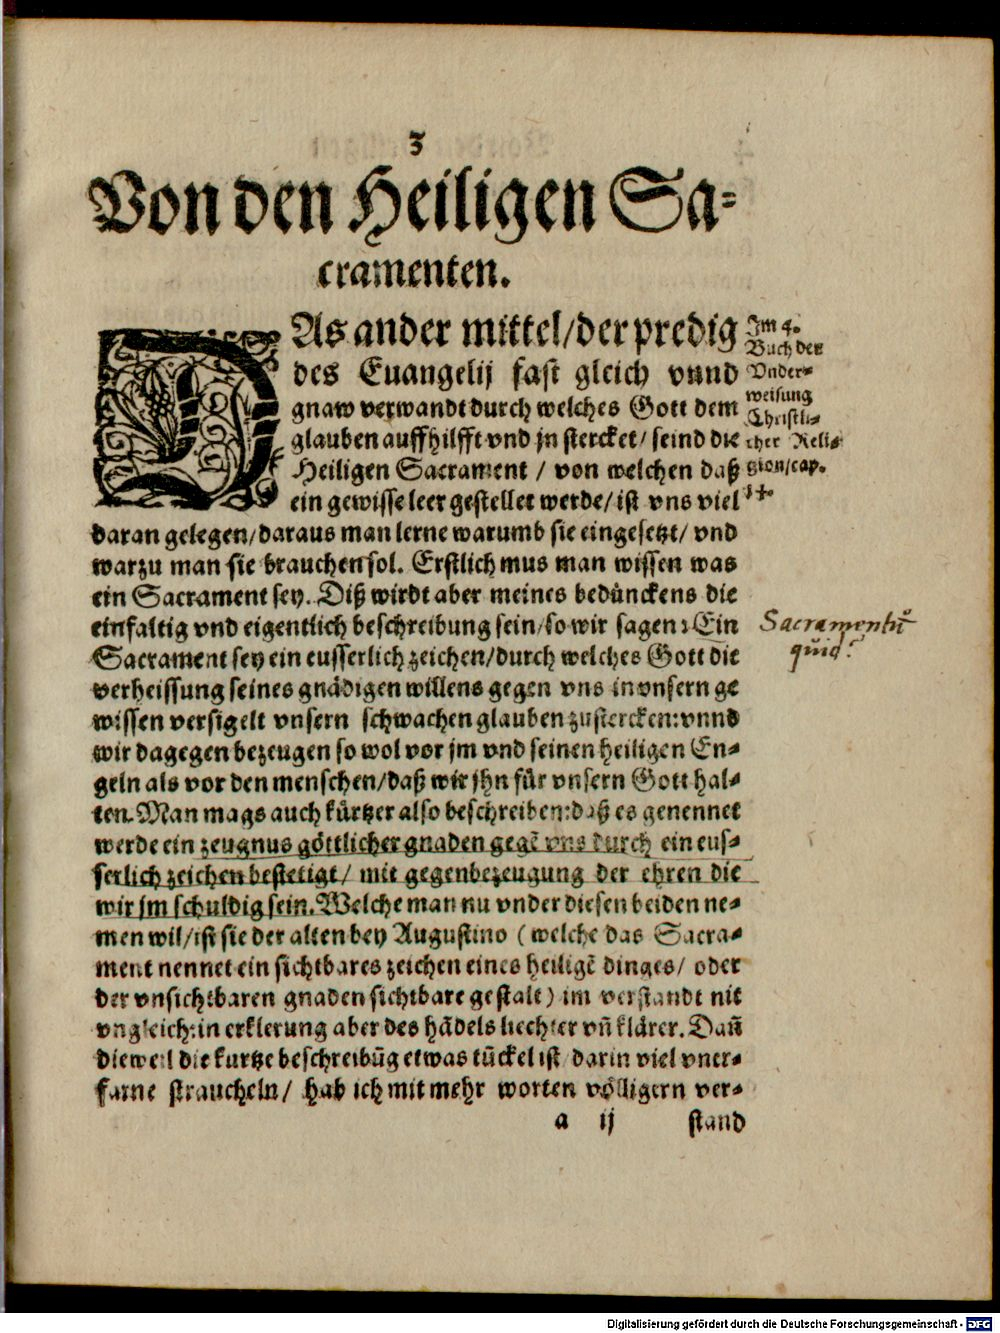 3
Von den Heiligen Sa-
cramenten.
DAs ander mittel/der predig
des Euangelij fast gleich vnnd
gnaw verwandt durch welches Gott dem
glauben auffhilfft vnd jn stercket/ seind die
Heiligen Sacrament / von welchen daß
ein gewisse leer gestellet werde/ ist vns viel
daran gelegen/daraus man lerne warumb sie eingesetzt/ vnd
warzu man sie brauchen sol. Erstlich mus man wissen was
ein Sacrament sey. Diß wirdt aber meines bedünckens die
einfaltig vnd eigentlich beschreibung sein/so wir sagen: Ein
Sacrament sey ein eusserlich zeichen/durch welches Gott die
verheissung seines gnädigen willens gegen vns in vnsern ge
wissen versigelt vnsern schwachen glauben zustercken: vnnd
wir dagegen bezeugen so wol vor jm vnd seinen heiligen En-
geln als vor den menschen/daß wir jhn für vnsern Gott hal-
ten. Man mags auch kürtzer also beschreiben: daß es genennet
werde ein zeugnus göttlicher gnaden gegē vns durch ein eus-
serlich zeichen bestetigt/ mit gegenbezeugung der ehren die
wir jm schuldig sein. Welche man nu vnder diesen beiden ne-
men wil/ist sie der alten bey Augustino (welche das Sacra-
ment nennet ein sichtbares zeichen eines heiligē dinges/ oder
der vnsichtbaren gnaden sichtbare gestalt) im verstandt nit
vngleich: in erklerung aber des hādels liechter vñ klärer. Dañ
dieweil die kurtze beschreibūg etwas tückel ist darin viel vner-
farne straucheln/ hab ich mit mehr worten völligern ver-
a ij stand
Im 4.
Buch der
Vnder-
weisung
Christli-
cher Reli-
gion/cap.
14.
Sacramentū
quid?
Digitalisierung gefördert durch die Deutsche Forschungsgemeinschaft - DFG